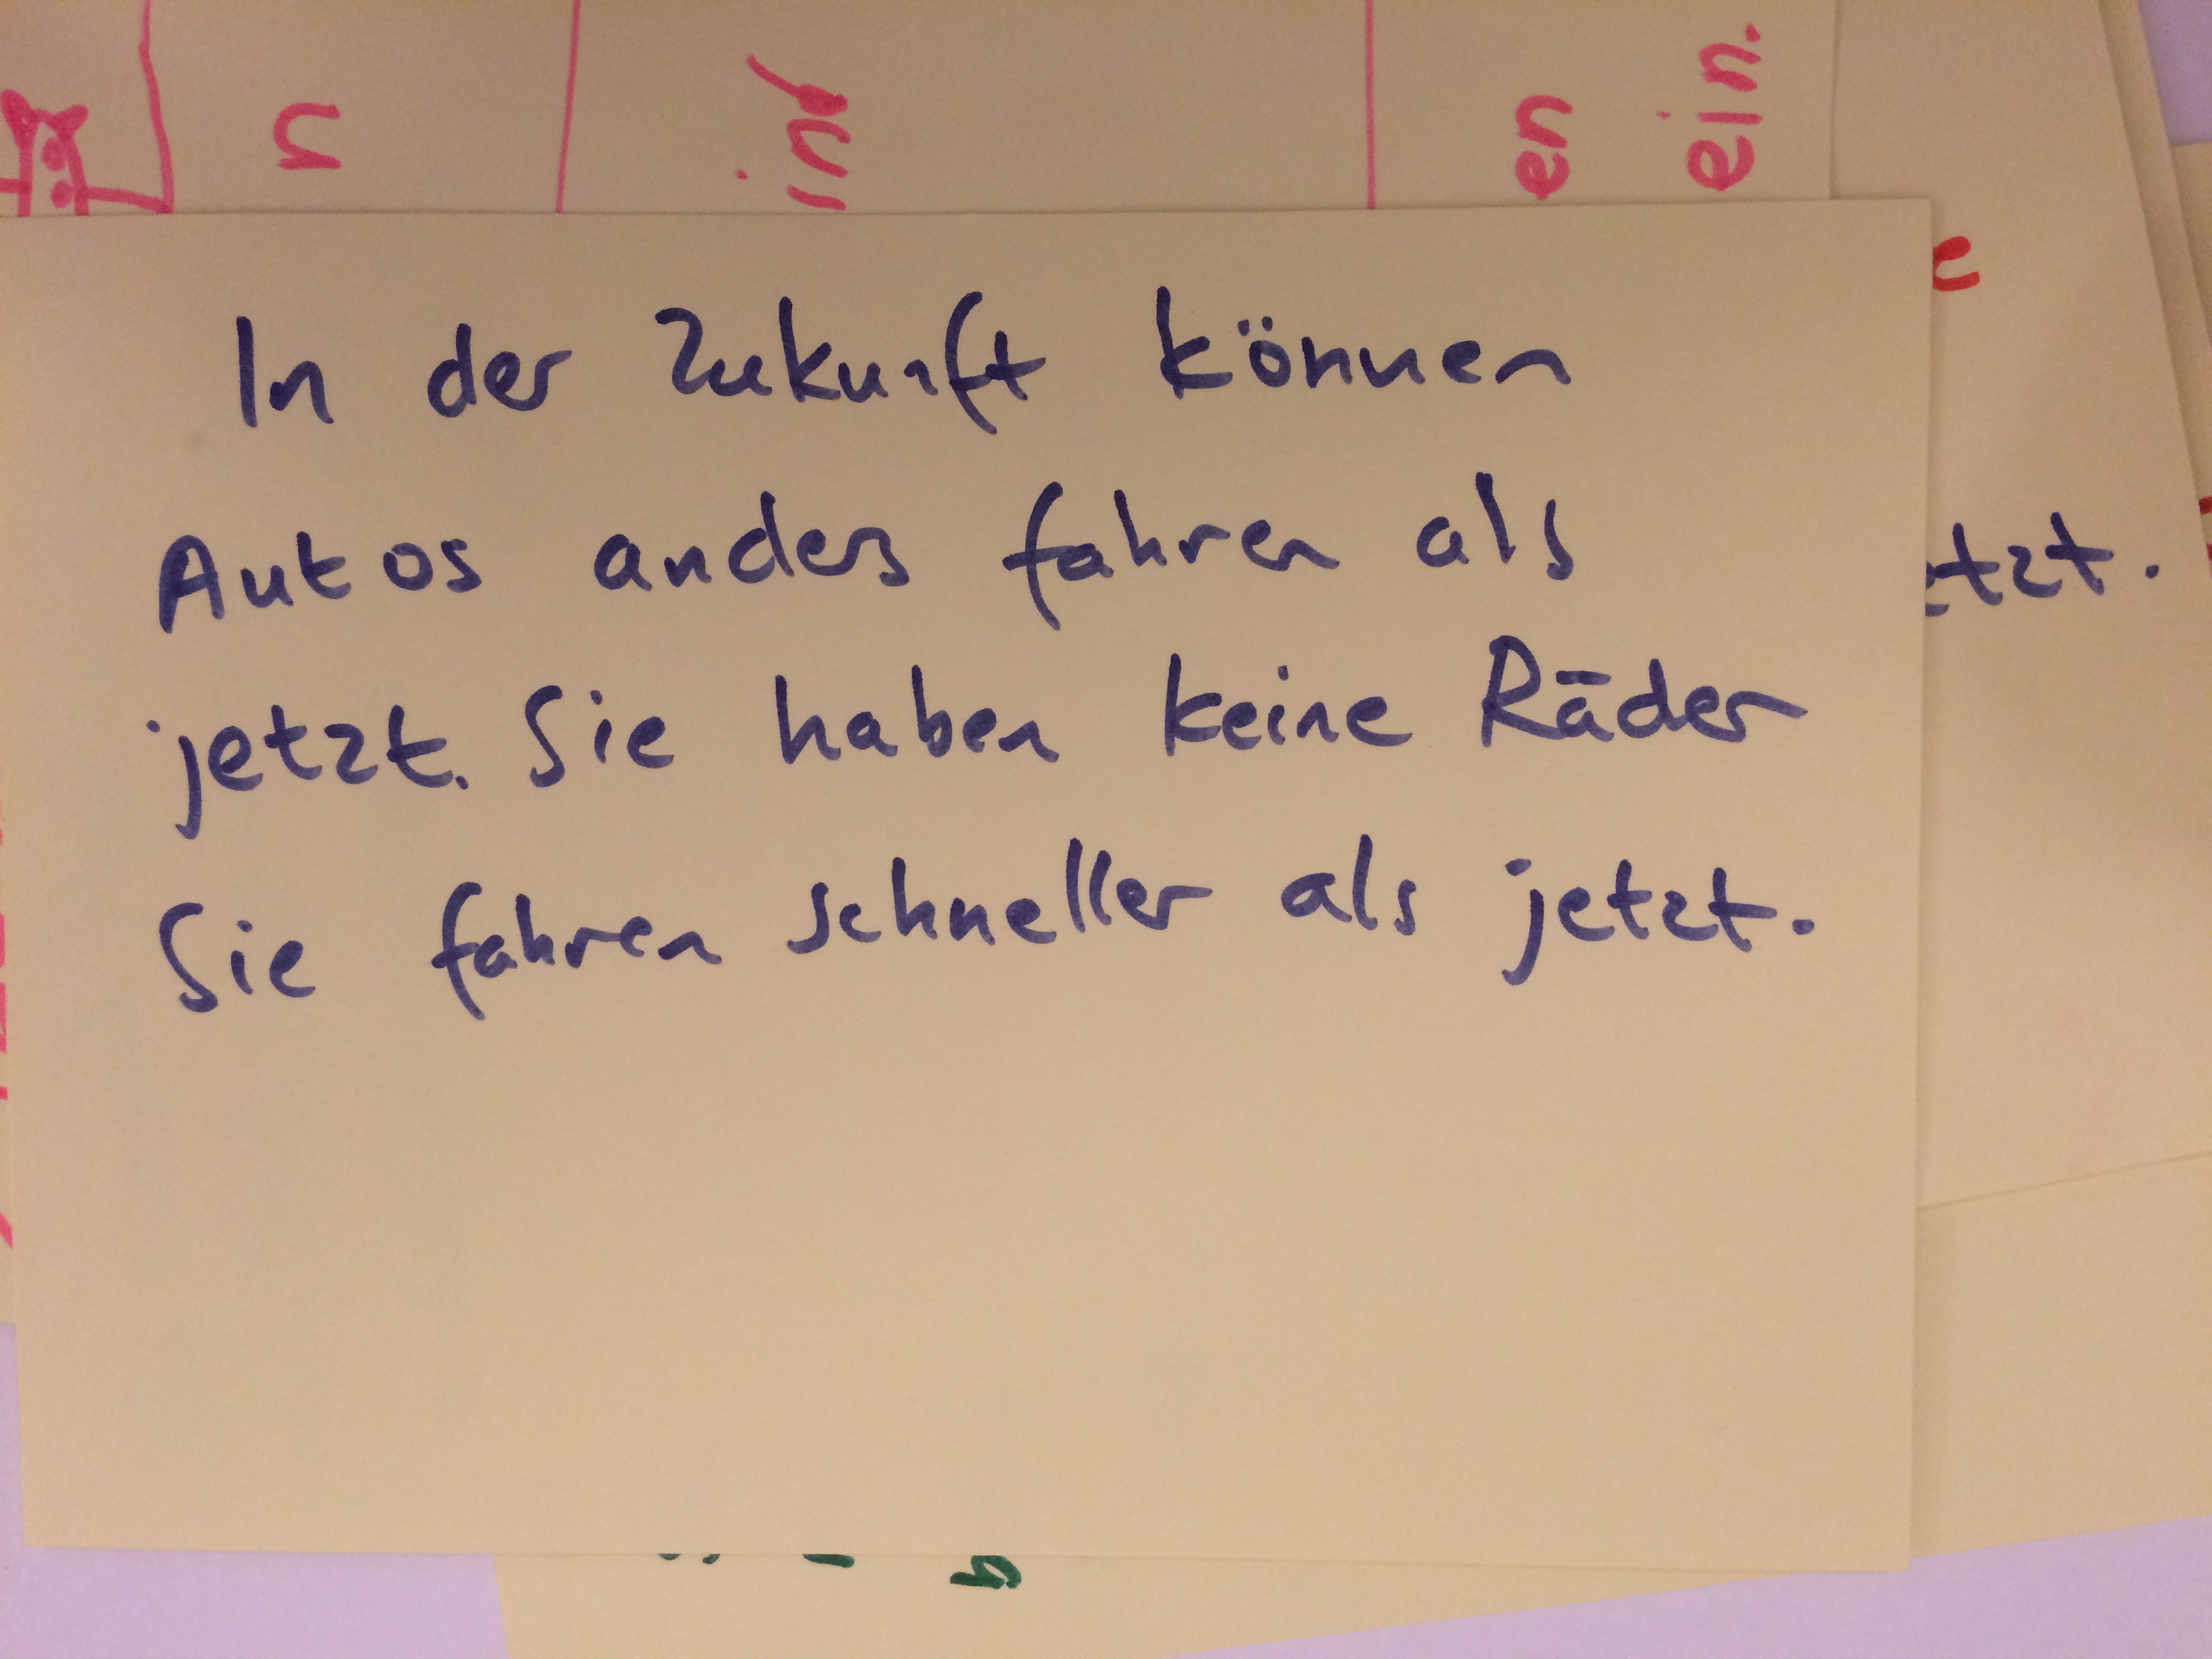 In der Zukunft können
Autos anders fahren als
jetzt. Sie haben keine Räder
Sie fahren schneller als jetzt.
n
ind
en
ein.
e
etzt.